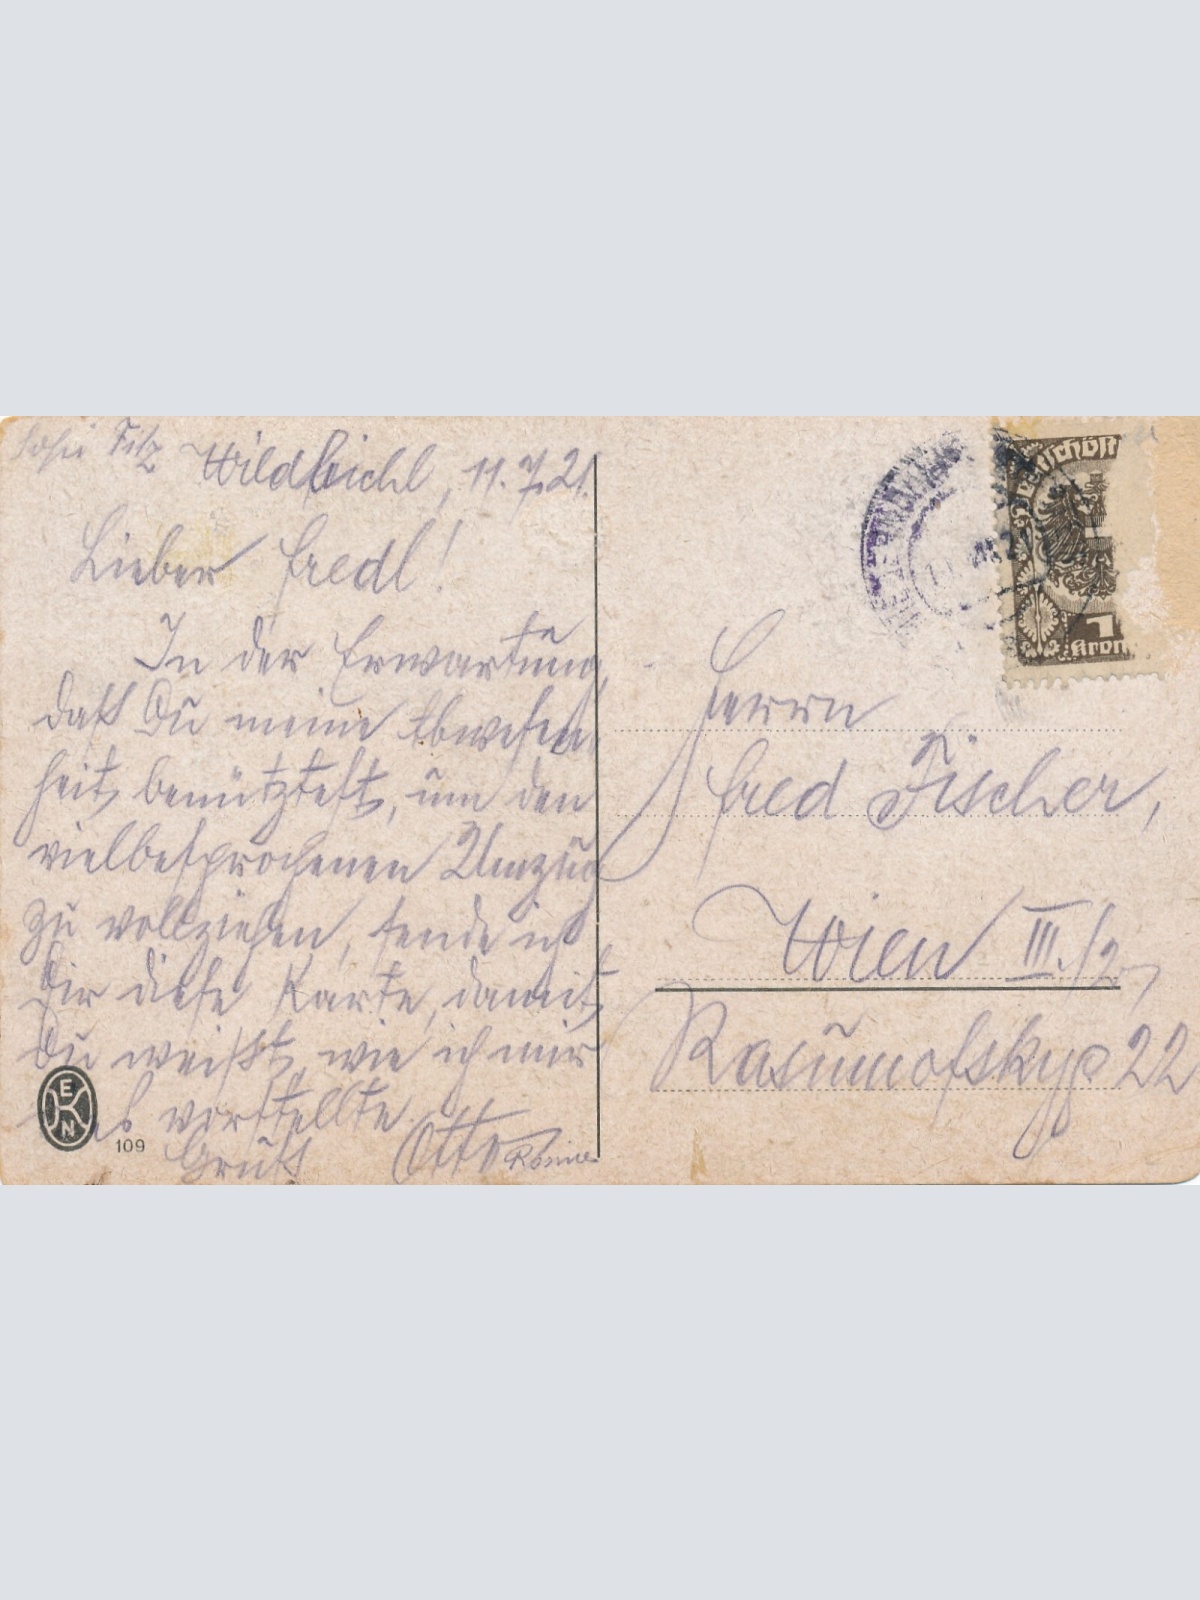 Wildbichl, 11.7.21.
Lieber Fredl!
In der Erwartung,
daß Du meine Abwesen
heit benütztest, um den
vielbesprochenen Umzug
zu vollziehen, sende ich
Dir diese Karte, damit
Du weißt, wie ich mir
es vorstellte.
Gruß Otto
EKN
109
Deutschöst
1
Kron
Herrn
Fred Fischer,
Wien III./2,
Rasumofskyg 22